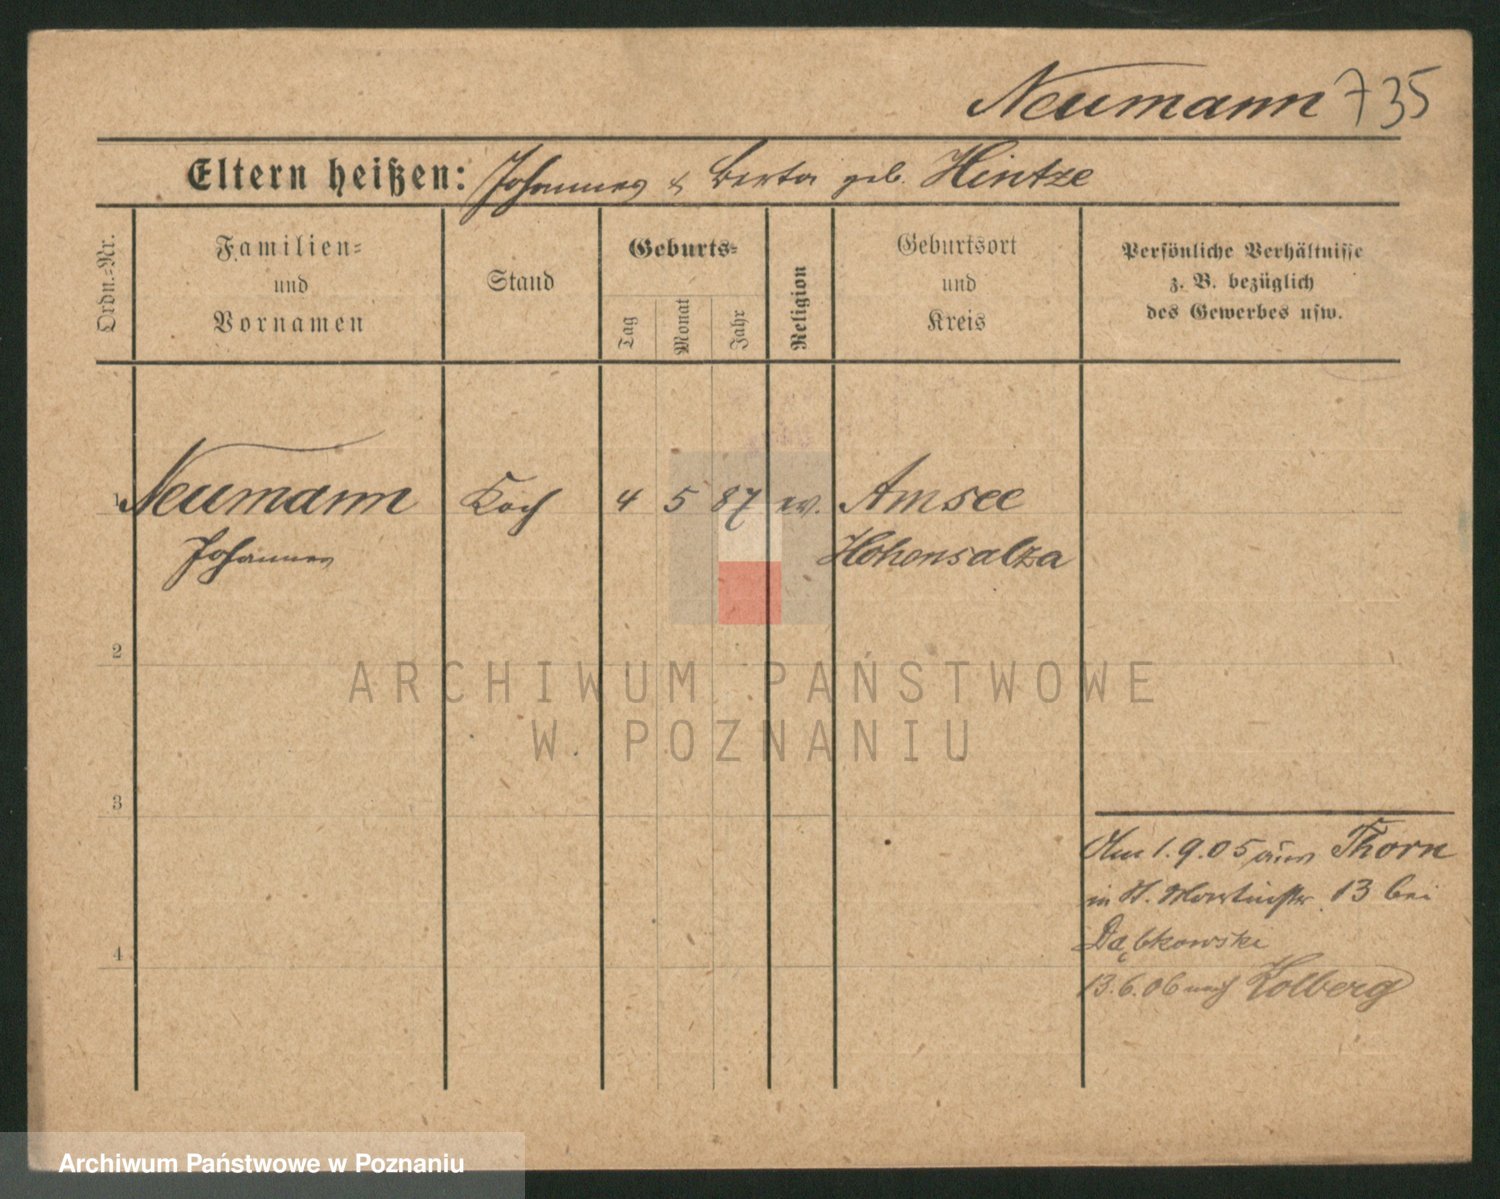 Neumann 735
Eltern heißen: Johannes & Berta geb. Hintze
Ordn.-Nr.
Familien-
und
Vornamen
Stand
Geburts-
Tag
Monat
Jahr
Religion
Geburtsort
und
Kreis
Persönliche Verhältnisse
z. B. bezüglich
des Gewerbes usw.
1 Neumann Koch 4 5 87 ev. Amsee
Johannes Hohensalza
2
ARCHIWUM PAŃSTWOWE
W POZNANIU
3
Am 1.9.05 aus Thorn
in St. Martinstr. 13 bei
Dąbkowski
4
13.6.06 nach Kolberg
Archiwum Państwowe w Poznaniu